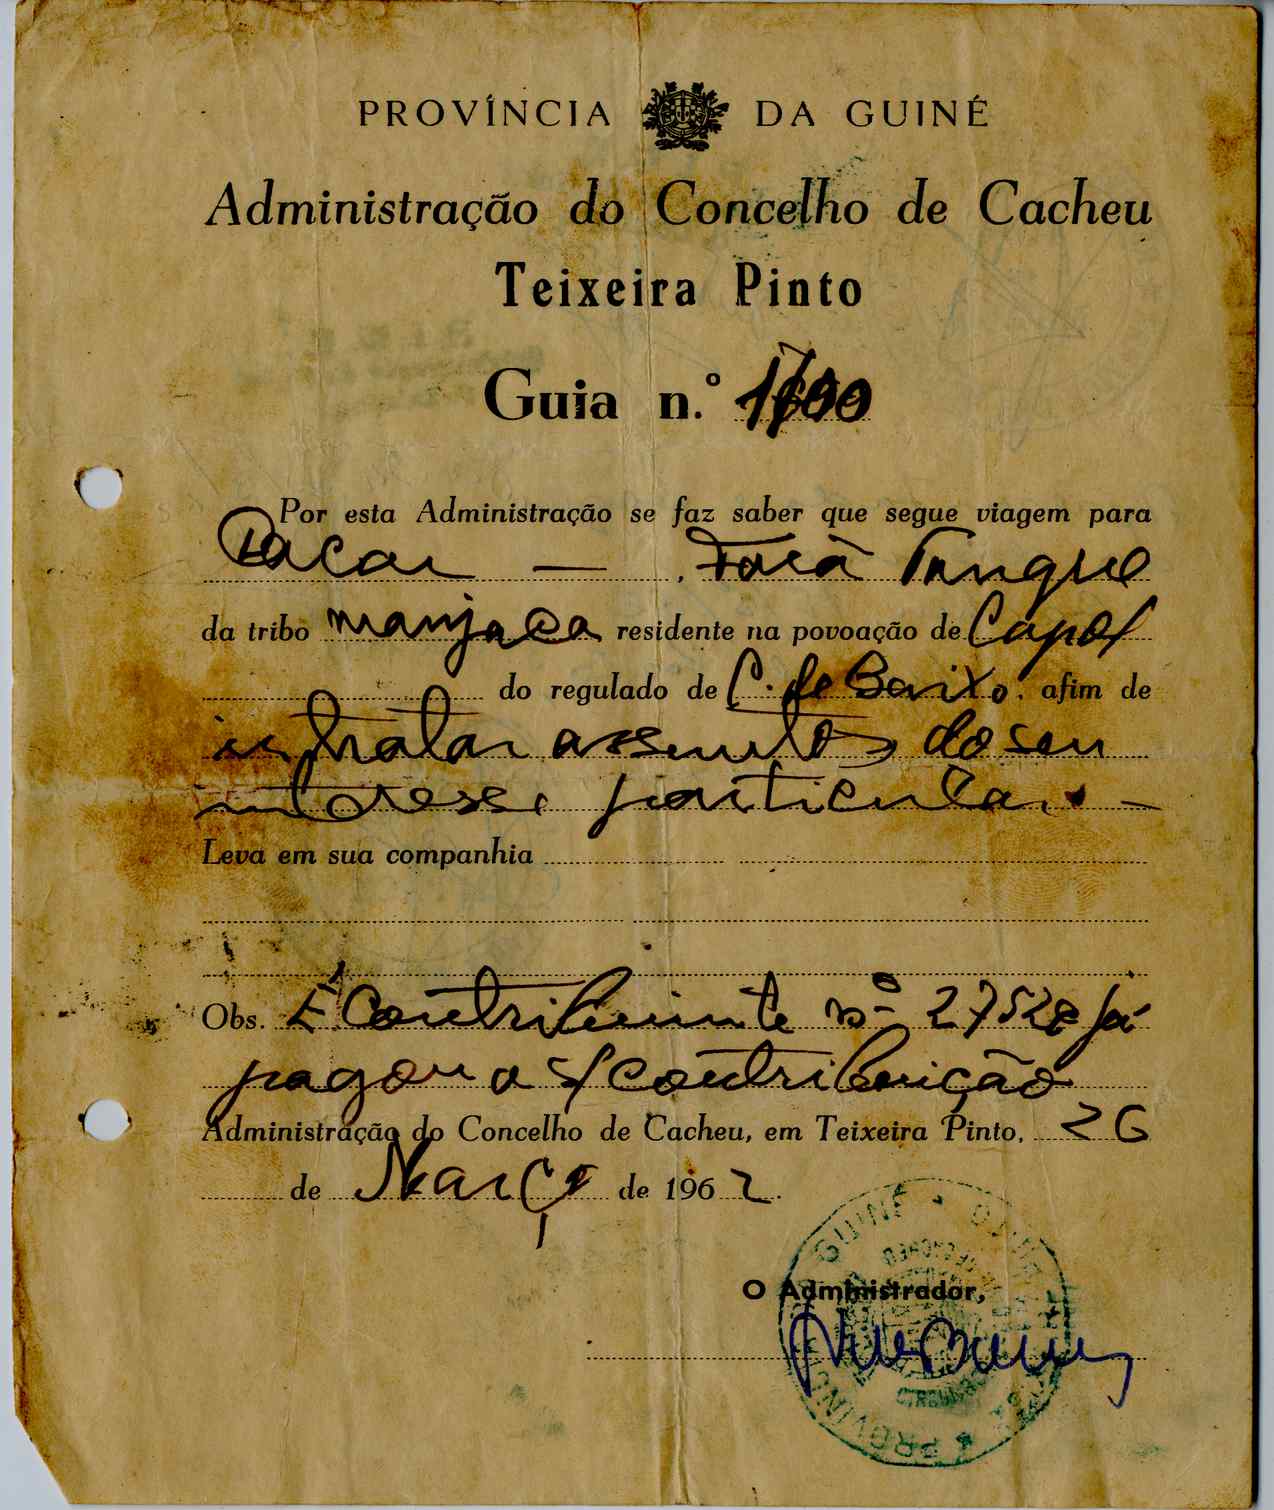 PROVÍNCIA DA GUINÉ
Administração do Concelho de Cacheu
Teixeira Pinto
Guia n.º
Por esta Administração se faz saber que segue viagem para
Dacar —
da tribo manjaca residente na povoação de Capol
do regulado de C. de Baixo. afim de
tratar assuntos do seu
interesse particular. —
Leva em sua companhia
Obs. É contribuinte nº 27528 já
pagou a s/ contribuição
Administração do Concelho de Cacheu, em Teixeira Pinto, 26
de Março de 1962.
O Administrador,